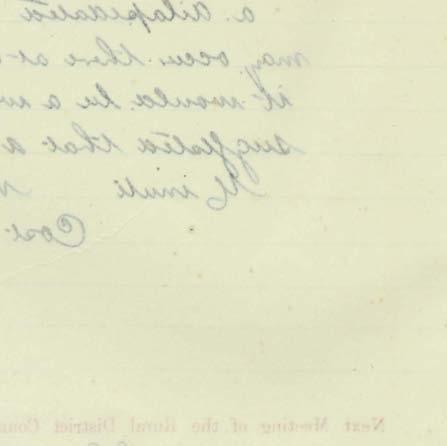 a dilapidated
may occur there at
it would be a w
suggested that a
Minute
Cost
Next Meeting of the Rural District Coun